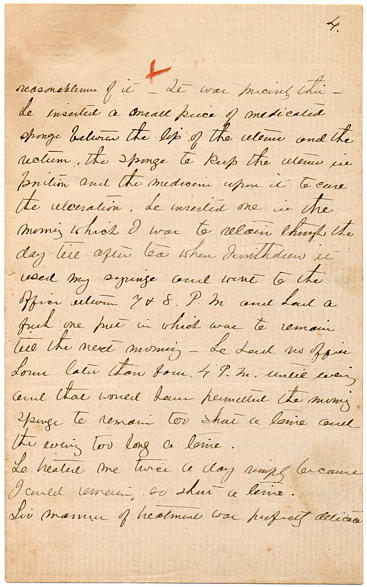 4.
reasonableness of it – It was precisely this –
He inserted a small piece of medicated
sponge between the lip of the uterus and the
rectum, the sponge to keep the uterus in
position and the medicine upon it to cure
the ulceration. He inserted one in the
morning which I was to retain through the
day till after tea when I withdrew it
used my syringe and went to the
office between 7 & 8. P.M. and had a
fresh one put in which was to remain
till the next morning – He had no office
hour later than from 4 P.M. until evening
and that would have permitted the morning
sponge to remain too short a time and
the evening too long a time.
He treated me twice a day simply because
I could remain, so short a time.
His manner of treatment was perfectly delicate